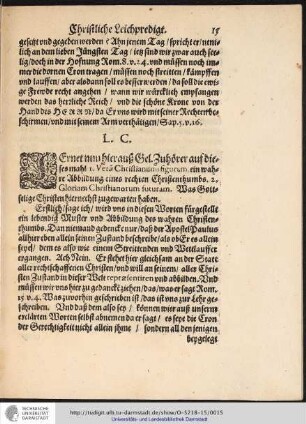 Christliche Leichpredigt. 15
gesetzt und gegeben werden? An jenem Tag / spricht er / nem-
lich an dem lieben Jüngsten Tag / jetzt sind wir zwar auch see-
lig / doch in der Hofnung Rom. 8. v. 24. und müssen noch im-
mer die dornen Cron tragen / müssen noch streitten / kämpffen
und lauffen / aber alsdann soll es besser werden / da soll die ewi-
ge Freude recht angehen / wann wir würcklich empfangen
werden das herrliche Reich / und die schöne Krone von der
Hand des HERRN / da Er uns wird mit seiner Rechten be-
schirmen / und mit seinem Arm verthädigen / Sap. 5. v. 16.
L. C.
LErnet nun hierauß Gel. Zuhörer auf die-
ses mahl 1. Veram Christianismi figuram, ein wah-
re Abbildung eines rechten Christenthumbs. 2.
Gloriam Christianorum futuram. Was Gott-
selige Christen hiernechst zugewarten haben.
Erstlich / sage ich / wird uns in diesen Worten fürgestellt
ein lebendig Muster und Abbildung des wahren Christen-
thumbs. Dann niemand gedencke nur / daß der Apostel Paulus
allhier eben allein seinen Zustand beschreibe / als ob Er es allein
seye / dem es also wie einem Streittenden und Wettlauffer
ergangen. Ach Nein. Er stehet hier gleichsam an der Statt
aller rechtschaffenen Christen / und will an seinem / aller Chris-
ten Zustand in dieser Welt repræsentiren und abbilden. Und
müssen wir uns hier zu gedancke ziehen / das / was er sagt Rom.
15 v. 4. Was zuvorhin geschrieben ist / das ist uns zur Lehr ge-
schrieben. Und daß dem also sey / können wir auß unsern
erklärten Worten selbst abnemen da er sagt / es seye die Cron
der Gerechtigkeit nicht allein ihme / sondern all den jenigen
beygelegt
http://tudigit.ulb.tu-darmstadt.de/show/O-5218-15/0015
Universitäts- und Landesbibliothek Darmstadt